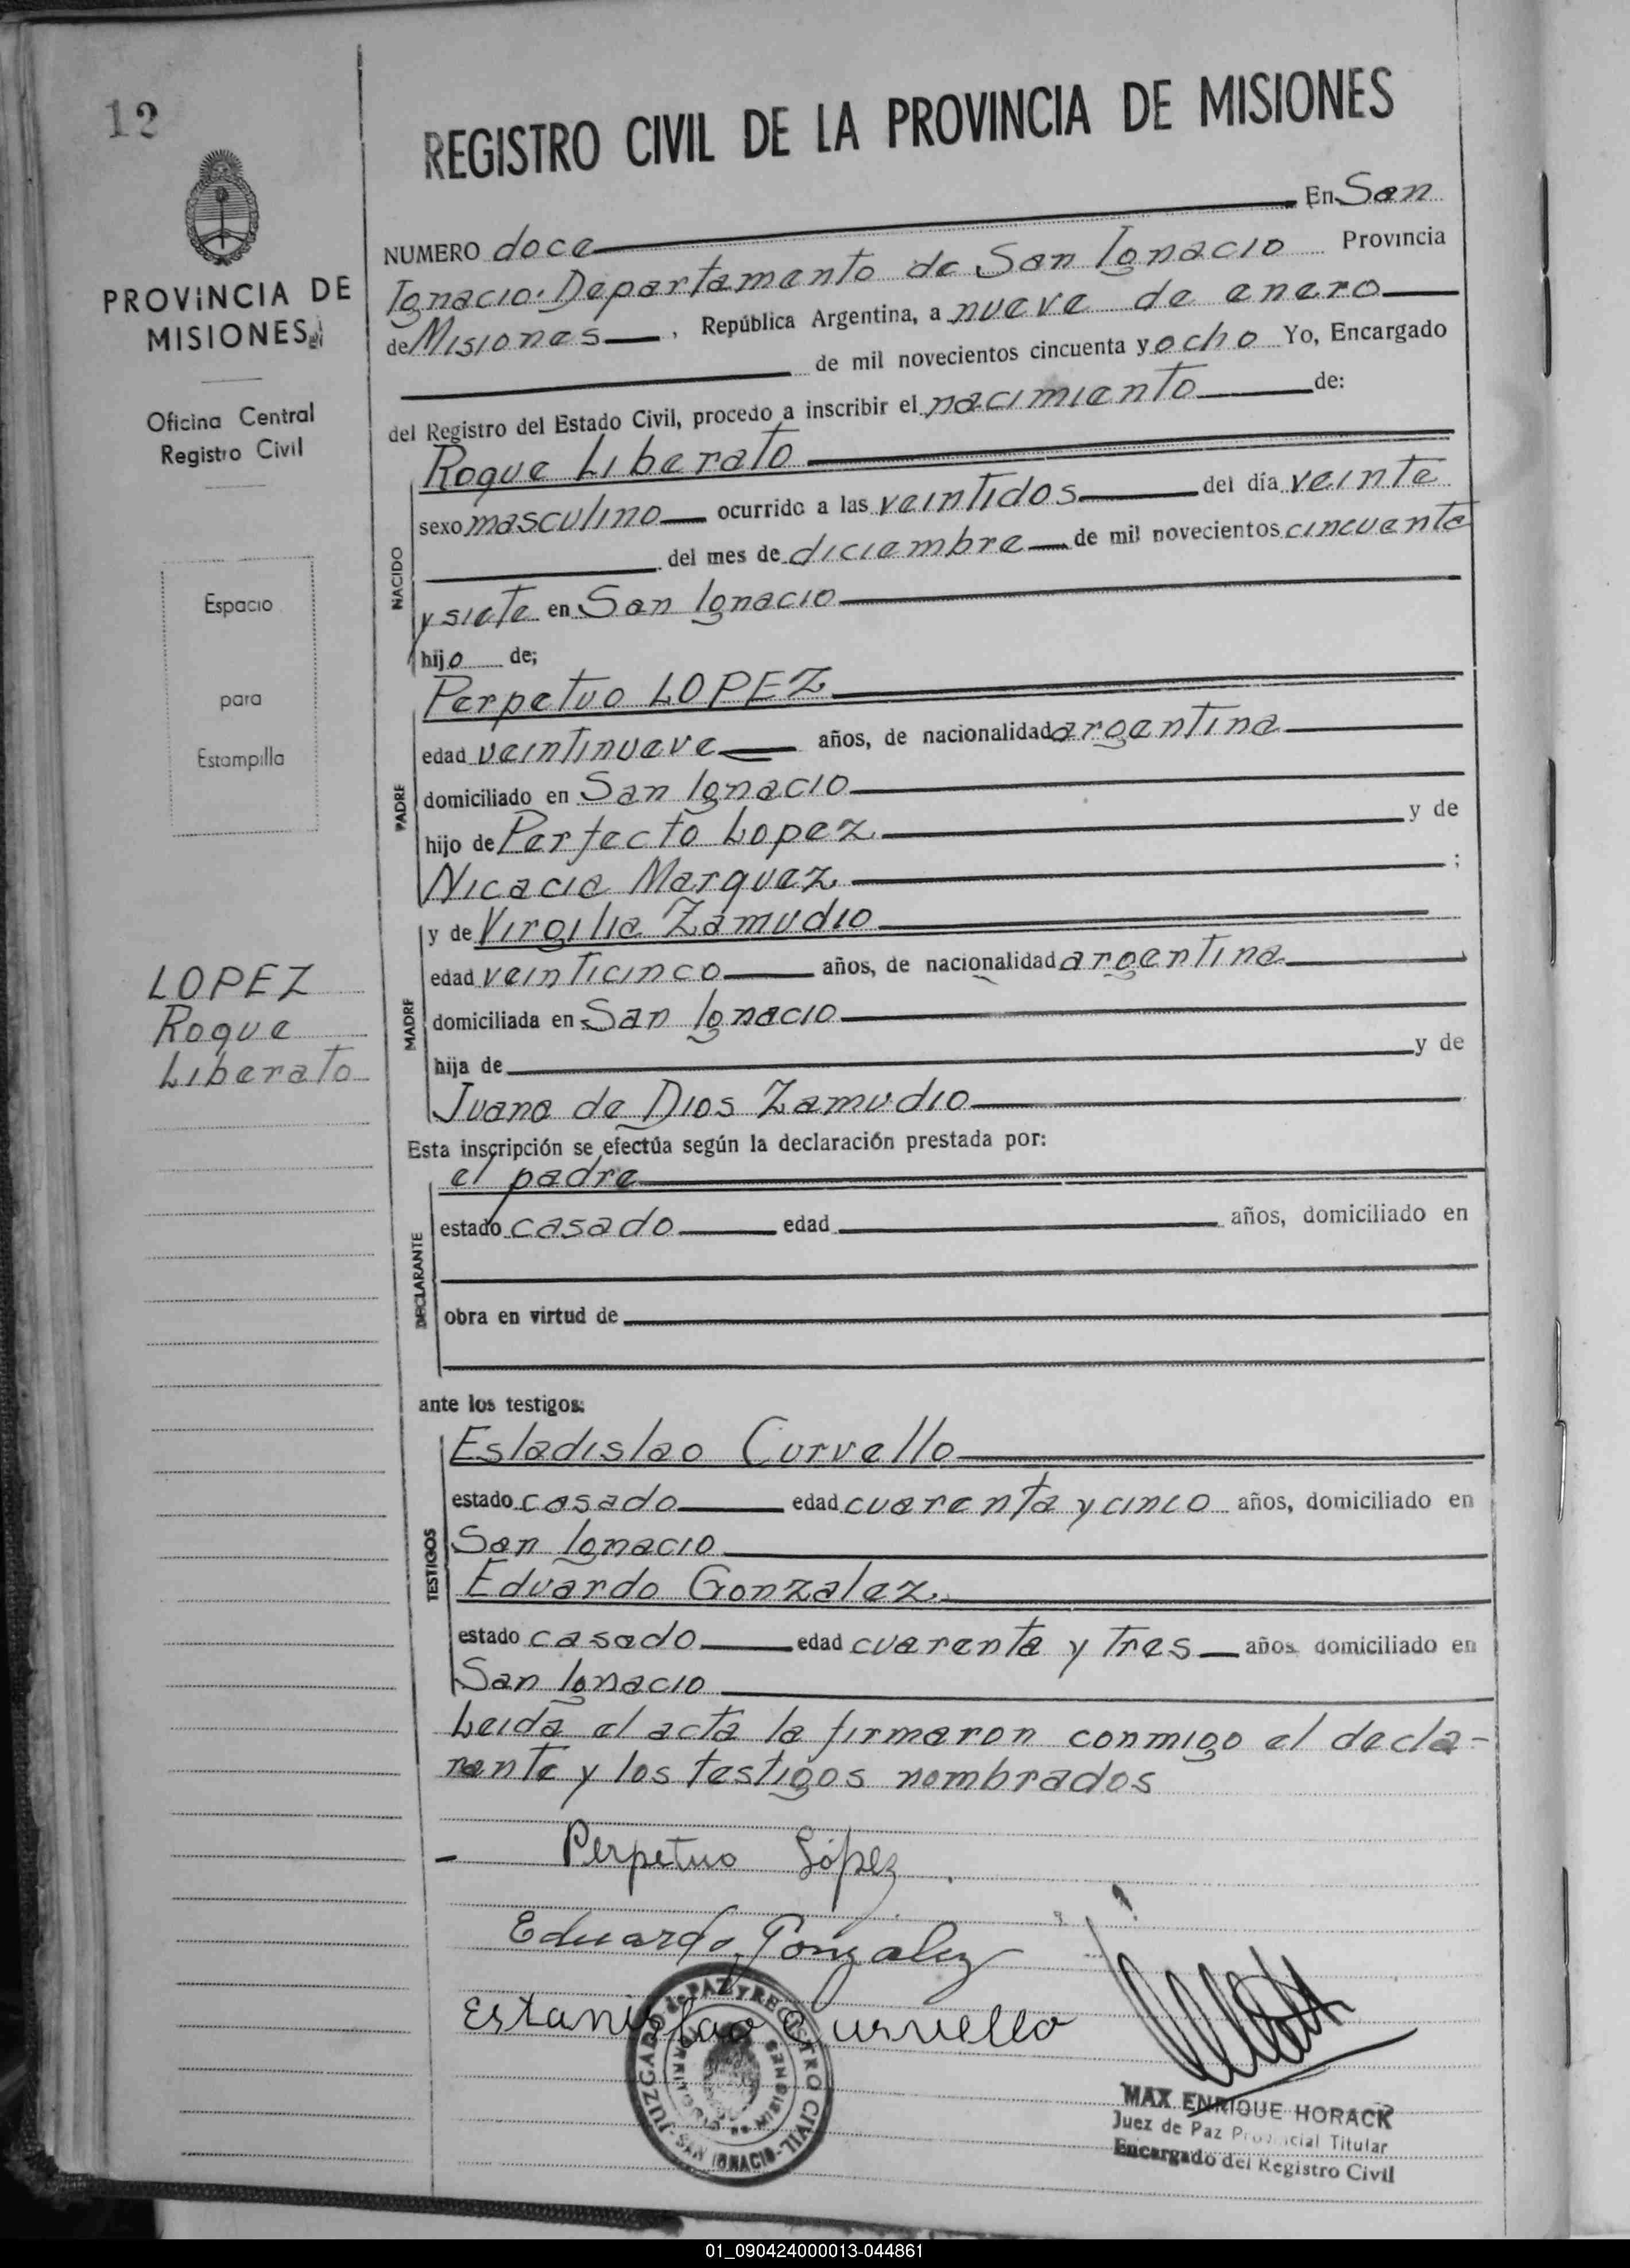 12
REGISTRO CIVIL DE LA PROVINCIA DE MISIONES
PROVINCIA DE
MISIONES
Oficina Central
Registro Civil
Espacio
para
Estampilla
LOPEZ
Roque
Liberato
NUMERO doce En San
Ignacio. Departamento de San Ignacio Provincia
de Misiones, República Argentina, a nueve de enero
de mil novecientos cincuenta y ocho Yo, Encargado
del Registro del Estado Civil, procedo a inscribir el nacimiento de:
NACIDO
Roque Liberato
sexo masculino ocurrido a las veintidos del día veinte
del mes de diciembre de mil novecientos cincuenta
y siete en San Ignacio
hijo de;
PADRE
Perpetuo LOPEZ
edad veintinueve años, de nacionalidad argentina
domiciliado en San Ignacio
hijo de Perfecto Lopez y de
Nicacia Marquez ;
MADRE
y de Virgilia Zamudio
edad veinticinco años, de nacionalidad argentina
domiciliada en San Ignacio
hija de y de
Juana de Dios Zamudio
Esta inscripción se efectúa según la declaración prestada por:
DECLARANTE
el padre
estado casado edad años, domiciliado en
obra en virtud de
ante los testigos:
TESTIGOS
Esladislao Curvello
estado casado edad cuarenta y cinco años, domiciliado en
San Ignacio
Eduardo Gonzalez
estado casado edad cuarenta y tres años domiciliado en
San Ignacio
Leida el acta la firmaron conmigo el decla-
rante y los testigos nombrados
Perpetuo López
Eduardo Gonzalez
Estanislao Curvello
JUZGADO de PAZ Y REGISTRO CIVIL - SAN IGNACIO -
TERRITORIO DE MISIONES
MAX ENRIQUE HORACK
Juez de Paz Provincial Titular
Encargado del Registro Civil
01_090424000013-044861